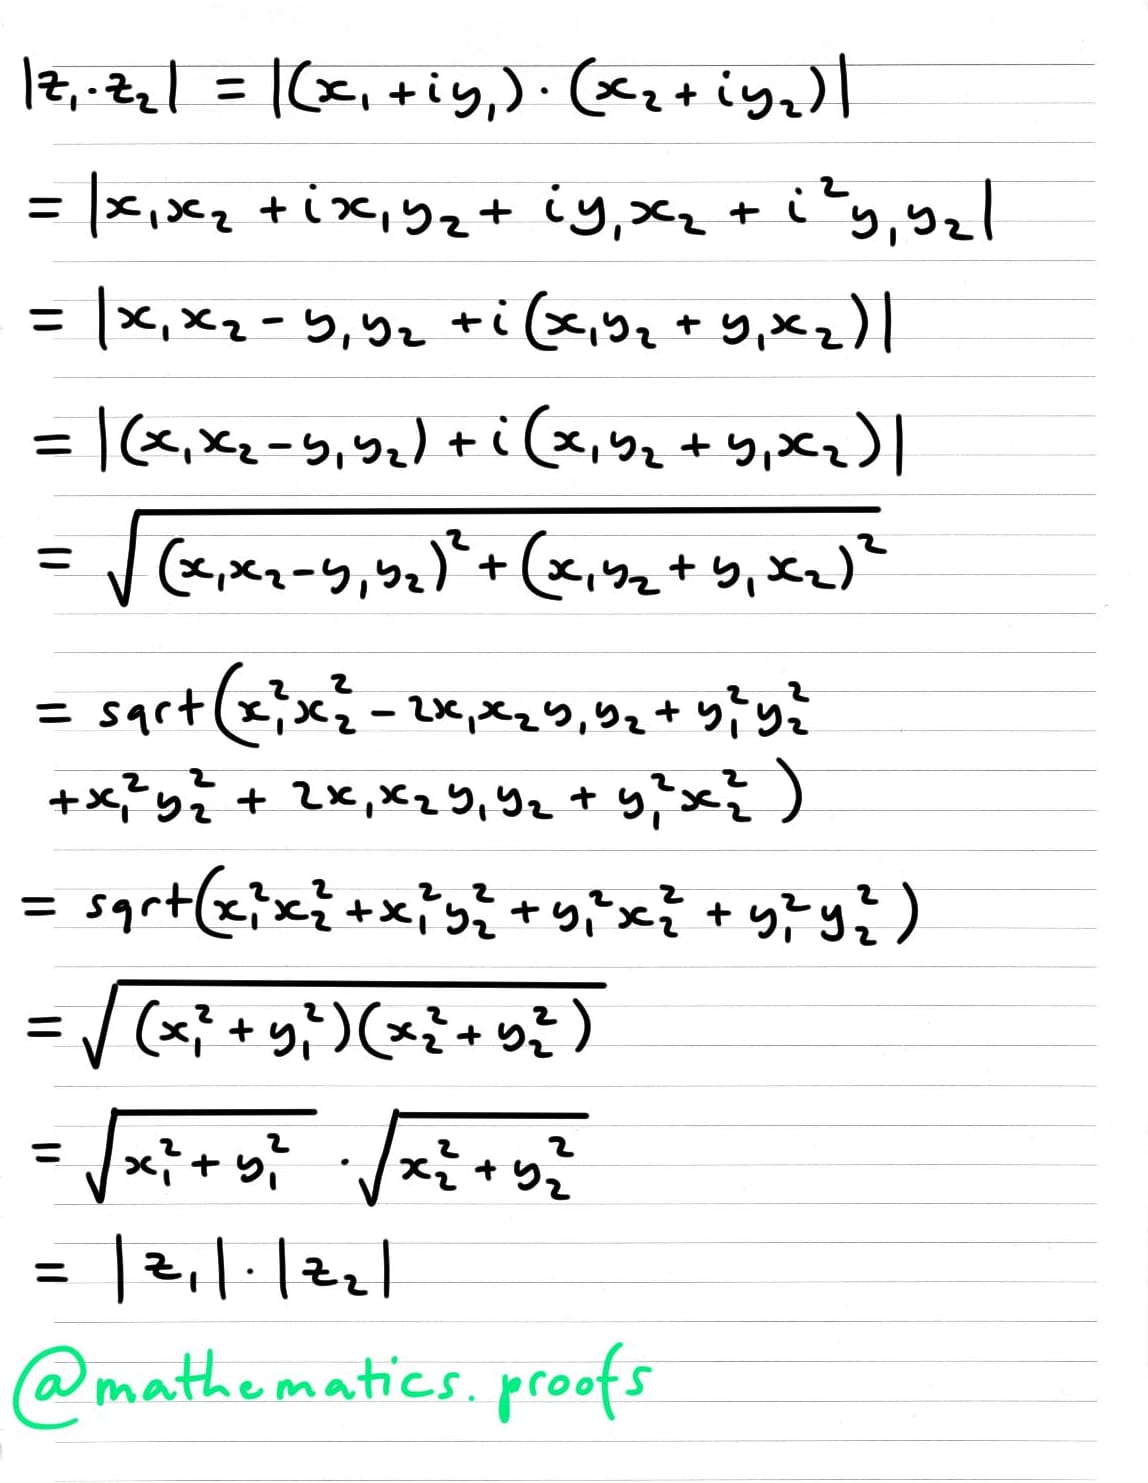 |z₁·z₂| = |(x₁+iy₁)·(x₂+iy₂)|
= |x₁x₂ + ix₁y₂ + iy₁x₂ + i²y₁y₂|
= |x₁x₂ - y₁y₂ + i(x₁y₂ + y₁x₂)|
= |(x₁x₂ - y₁y₂) + i(x₁y₂ + y₁x₂)|
= √((x₁x₂ - y₁y₂)² + (x₁y₂ + y₁x₂)²)
= sqrt(x₁²x₂² - 2x₁x₂y₁y₂ + y₁²y₂²
+ x₁²y₂² + 2x₁x₂y₁y₂ + y₁²x₂²)
= sqrt(x₁²x₂² + x₁²y₂² + y₁²x₂² + y₁²y₂²)
= √((x₁² + y₁²)(x₂² + y₂²))
= √(x₁² + y₁²) · √(x₂² + y₂²)
= |z₁|·|z₂|
@mathematics.proofs